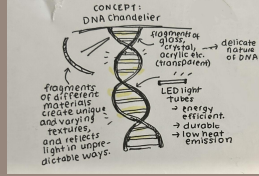 CONCEPT:
DNA CHANDELIER
fragments of
glass,
crystal,
acrylic etc.
(transparent)
→ delicate
nature
of DNA
fragments
of different
materials
create unique
and varying
textures,
and reflects
light in unpre-
dictable ways.
LED light
tubes
→ energy
efficient.
→ durable
→ low heat
emission